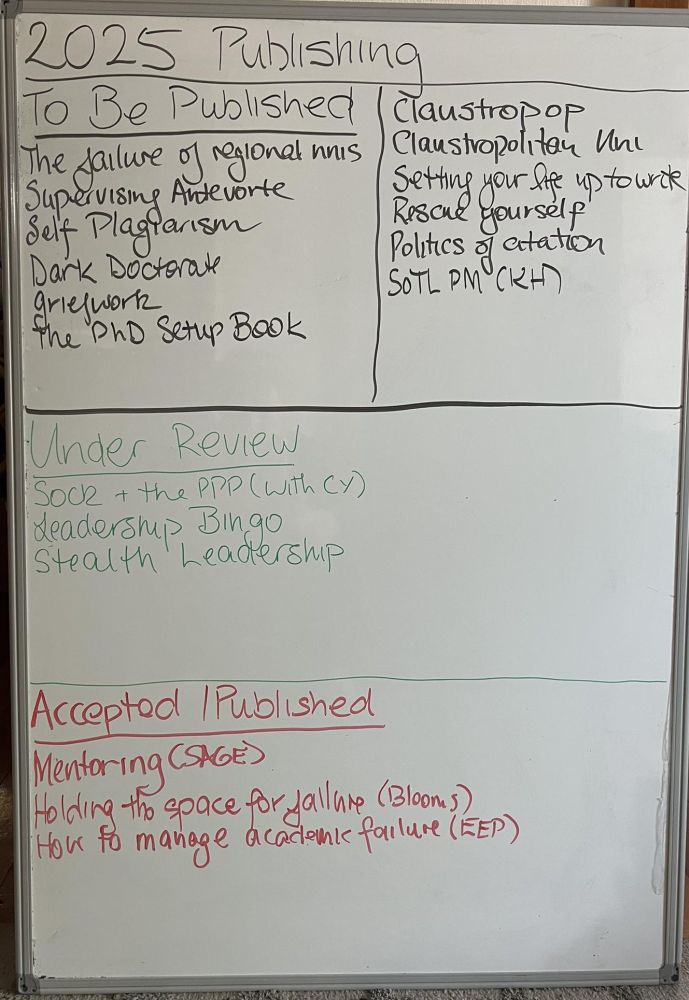 2025 Publishing
To Be Published
The failure of regional unis
Supervising Antevorte
Self Plagiarism
Dark Doctorate
griefwork
The PhD Setup Book
Claustropop
Claustropolitan Uni
Setting your life up to write
Rescue yourself
Politics of citation
SoTL PM (KH)
Under Review
Sock + the PPP (with CY)
Leadership Bingo
Stealth Leadership
Accepted / Published
Mentoring (SAGE)
Holding the space for failure (Blooms)
How to manage academic failure (EEP)